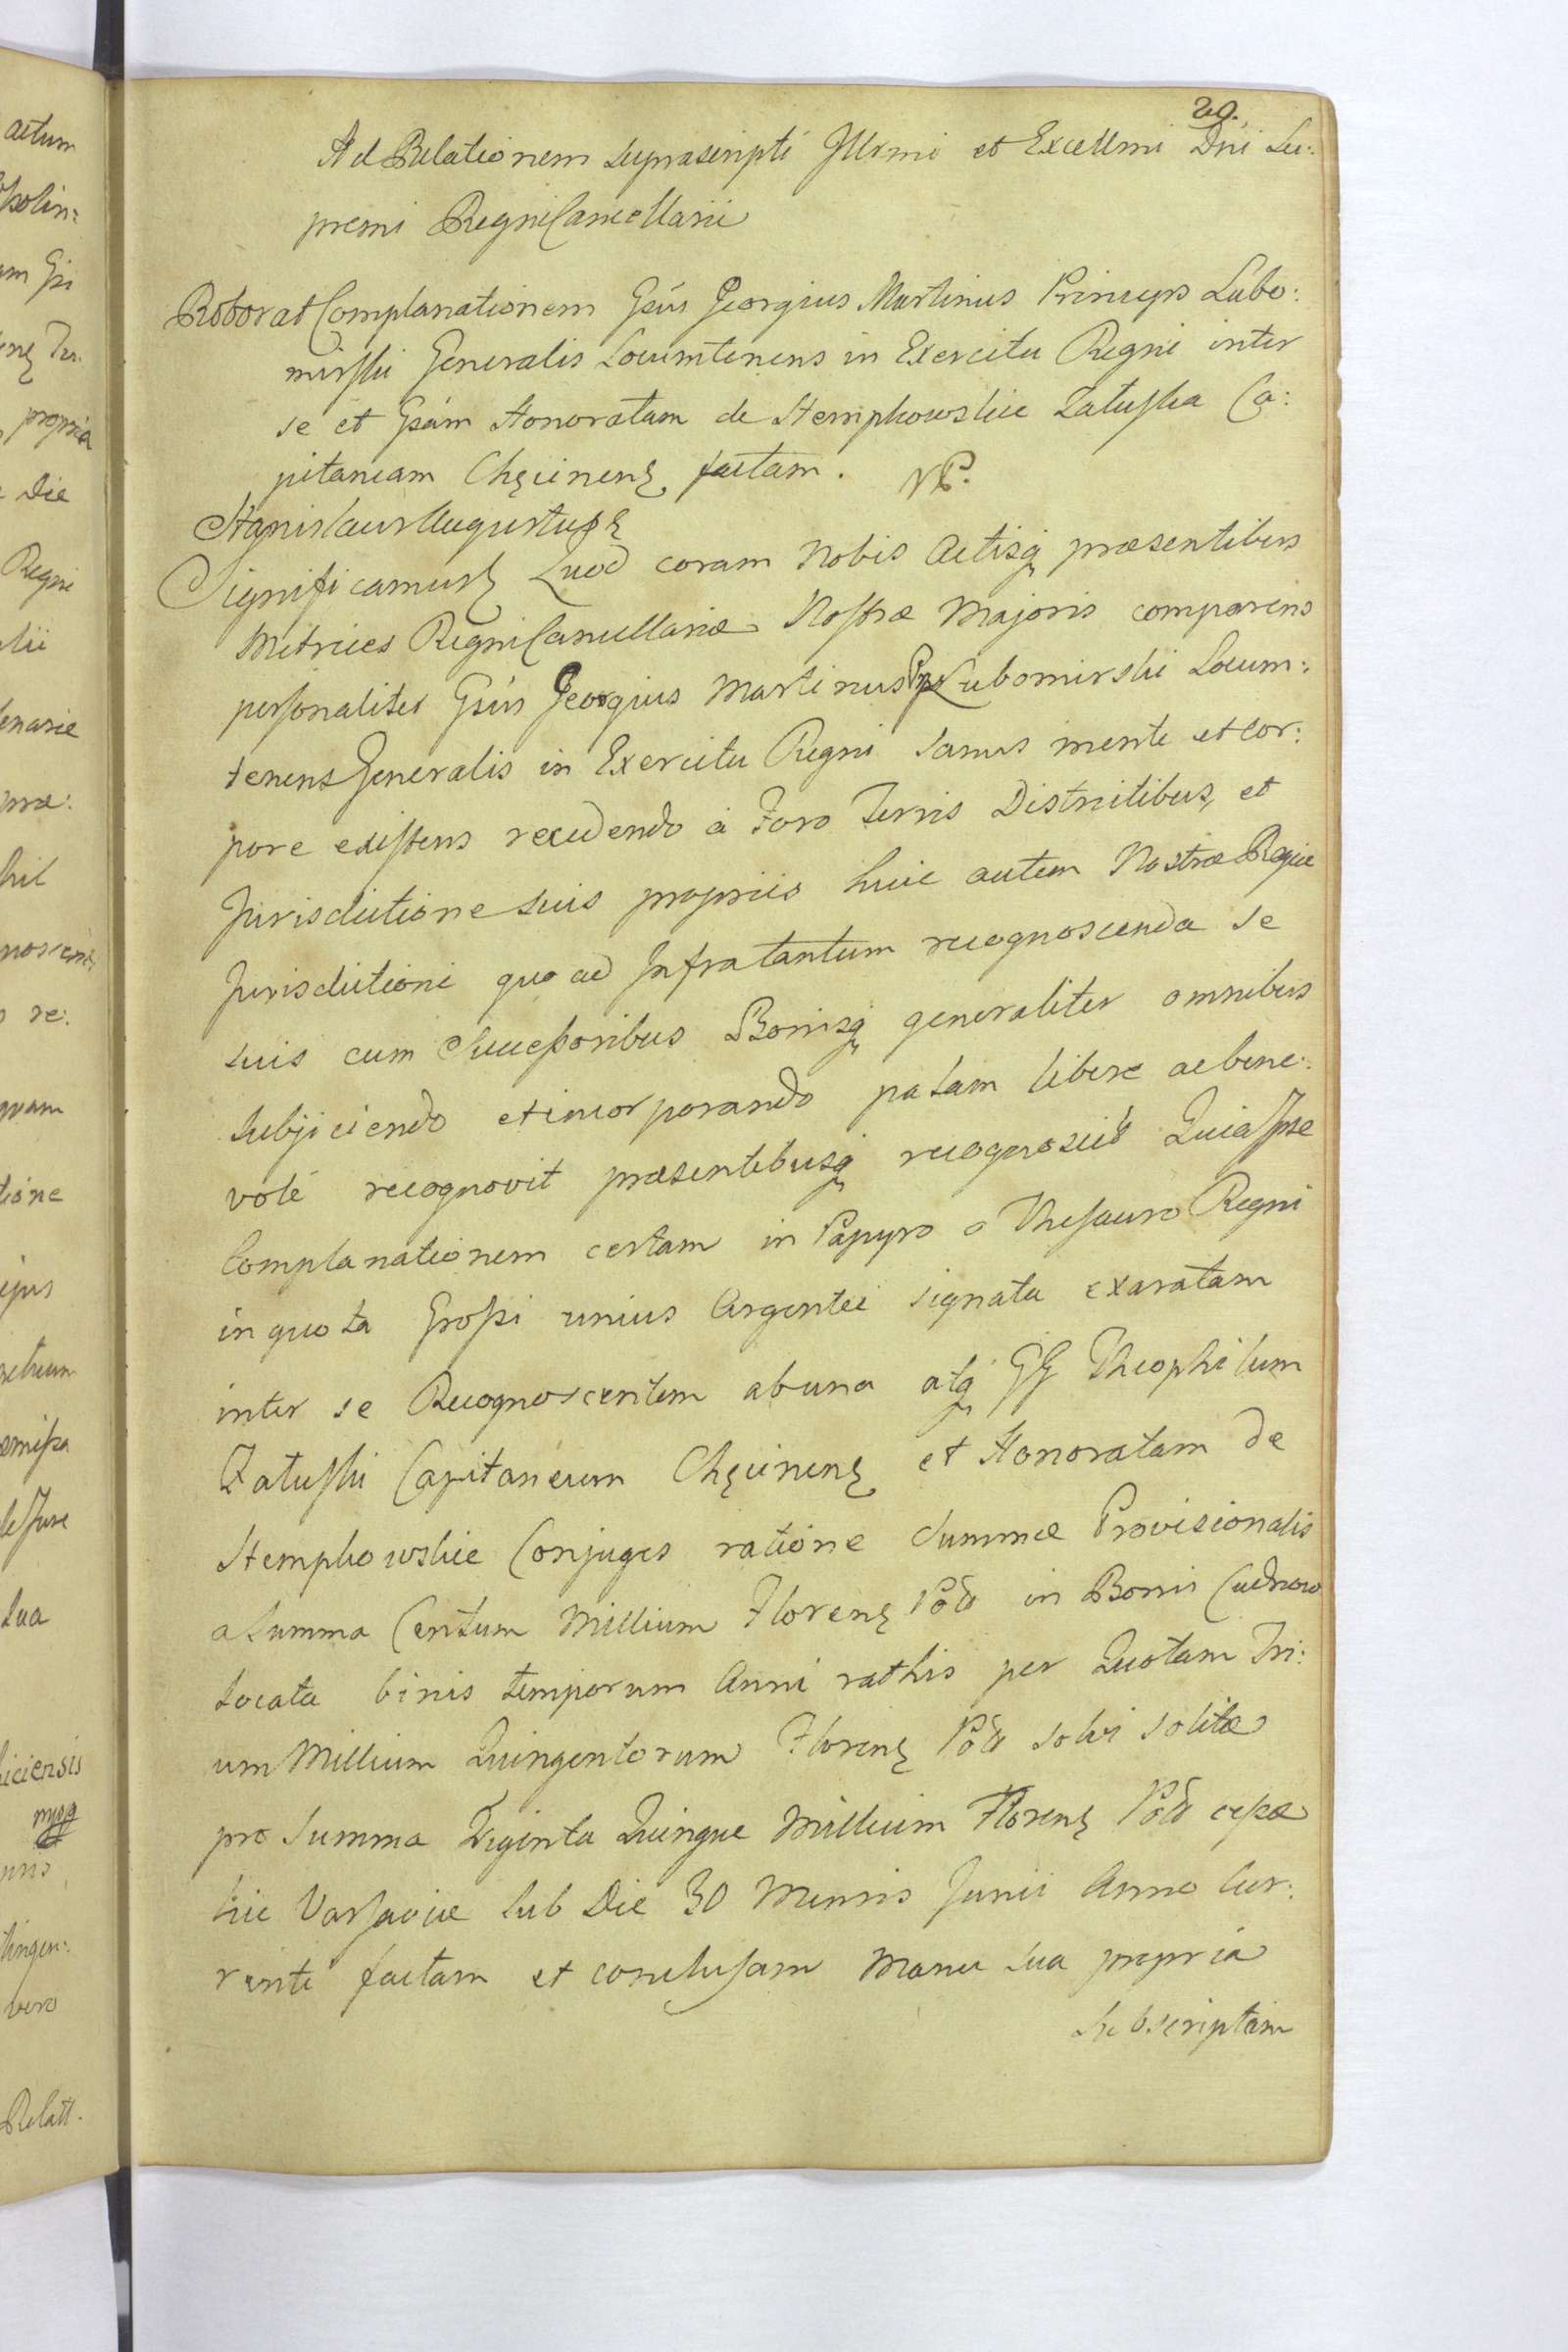 29.
Ad Relationem suprascripti Illrmi et Excellmi Dni Su:
premi Regni Cancellarii
Roborat Complanationem Gsus Georgius Martinus Princeps Lubo:
mirski Generalis Locumtenens in Exercitu Regni inter
se et Gsam Honoratam de Stempkowskie Załuska Ca:
pitaneam Chęcinens factam. NP.
Stanislaus Augustus
Significamus Quod coram Nobis Actisq praesentibus
Metrices Regni Cancellariae Nostrae Majoris comparens
personaliter Gsus Georgius Martinus Pnps Lubomirski Locum:
tenens Generalis in Exercitu Regni sanus mente et cor:
pore existens recedendo a Foro Terris Districtibus, et
Jurisdictione suis propriis huic autem Nostrae Regiae
Jurisdictioni quo ad Infra tantum recognoscenda se
suis cum Successoribus Bonisq generaliter omnibus
subjiciendo et incorporando palam libere ac bene:
volé recognovit praesentibusq recognoscit Quia Ipse
Complanationem certam in Papyro o Thesauro Regni
in quota Grossi unius Argentei signata exaratam
inter se Recognoscentem ab una atq GG Theophilum
Załuski Capitaneum Chęcinens et Honoratam de
Stempkowskie Conjuges ratione Summae Provisionalis
a Summa Centum Millium Florens Pol in Bonis Cudnow
locata binis temporum Anni rathis per Quotam Tri:
um Millium Quingentorum Florens Pol solvi solitae
pro Summa Viginta Quinque Millium Florens Pol cessae
hic Varsaviae sub Die 30 Mensis Junii Anno Cur:
rente factam et conclusam Manu sua propria
Subscriptam
actum
propria
Die
Regni
ejus
sua
iciensis
vero
Relatt.